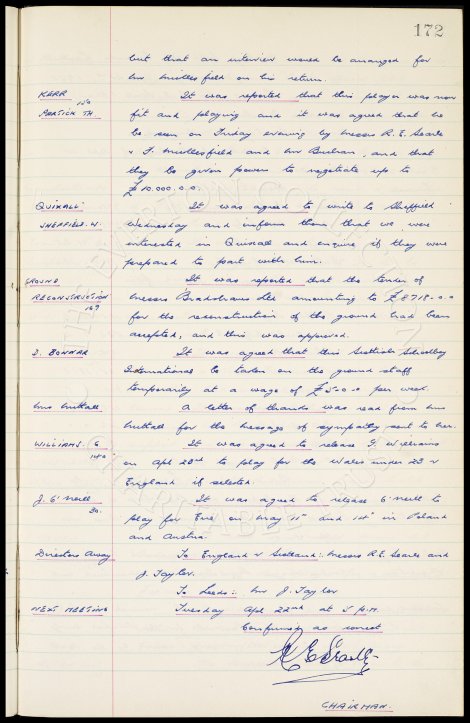 172
but that an interview would be arranged for
Mr Micklesfield on his return.
KERR
150
PARTICK TH
It was reported that this player was now
fit and playing and it was agreed that he
be seen on Friday evening by Messrs R.E. Searle
& F. Micklesfield and Mr Buchan, and that
they be given powers to negotiate up to
£10.000.0.0.
QUIXALL
SHEFFIELD. W.
It was agreed to write to Sheffield
Wednesday and inform them that we were
interested in Quixall and enquire if they were
prepared to part with him.
GROUND
RECONSTRUCTION
169
It was reported that the tender of
Messrs Bradshaws Ltd amounting to £8718-0-0
for the reconstruction of the ground had been
accepted, and this was approved.
D. BONNAR
It was agreed that this Scottish Schoolboy
International be taken on the ground staff
temporarily at a wage of £5-0-0 per week.
Mrs Nuttall
A letter of thanks was read from Mrs
Nuttall for the message of sympathy sent to her.
WILLIAMS. G
It was agreed to release G. Williams
on Apl 23rd to play for the Wales under 23 v
England if selected.
J. O'Neill
It was agreed to release O'Neill to
play for Eire on May 11th and 14th in Poland
and Austria.
Directors Away
To England v Scotland:. Messrs R.E. Searle and
J. Taylor.
To Leeds:. Mr J. Taylor
NEXT MEETING
Tuesday Apl 22nd at 5 P.M.
Confirmed as correct
R E Searle
CHAIRMAN.